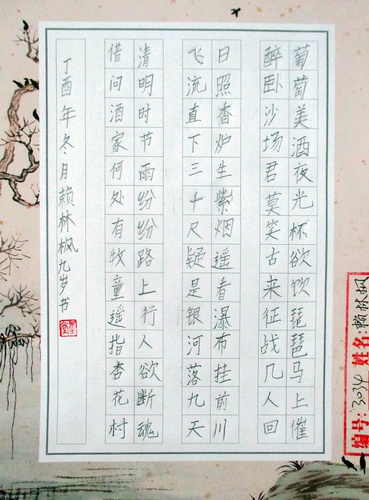 葡萄美酒夜光杯欲饮琵琶马上催
醉卧沙场君莫笑古来征战几人回
日照香炉生紫烟遥看瀑布挂前川
飞流直下三千尺疑是银河落九天
清明时节雨纷纷路上行人欲断魂
借问酒家何处有牧童遥指杏花村
丁酉年冬月赖林枫九岁书
编号:3034 姓名:赖林枫